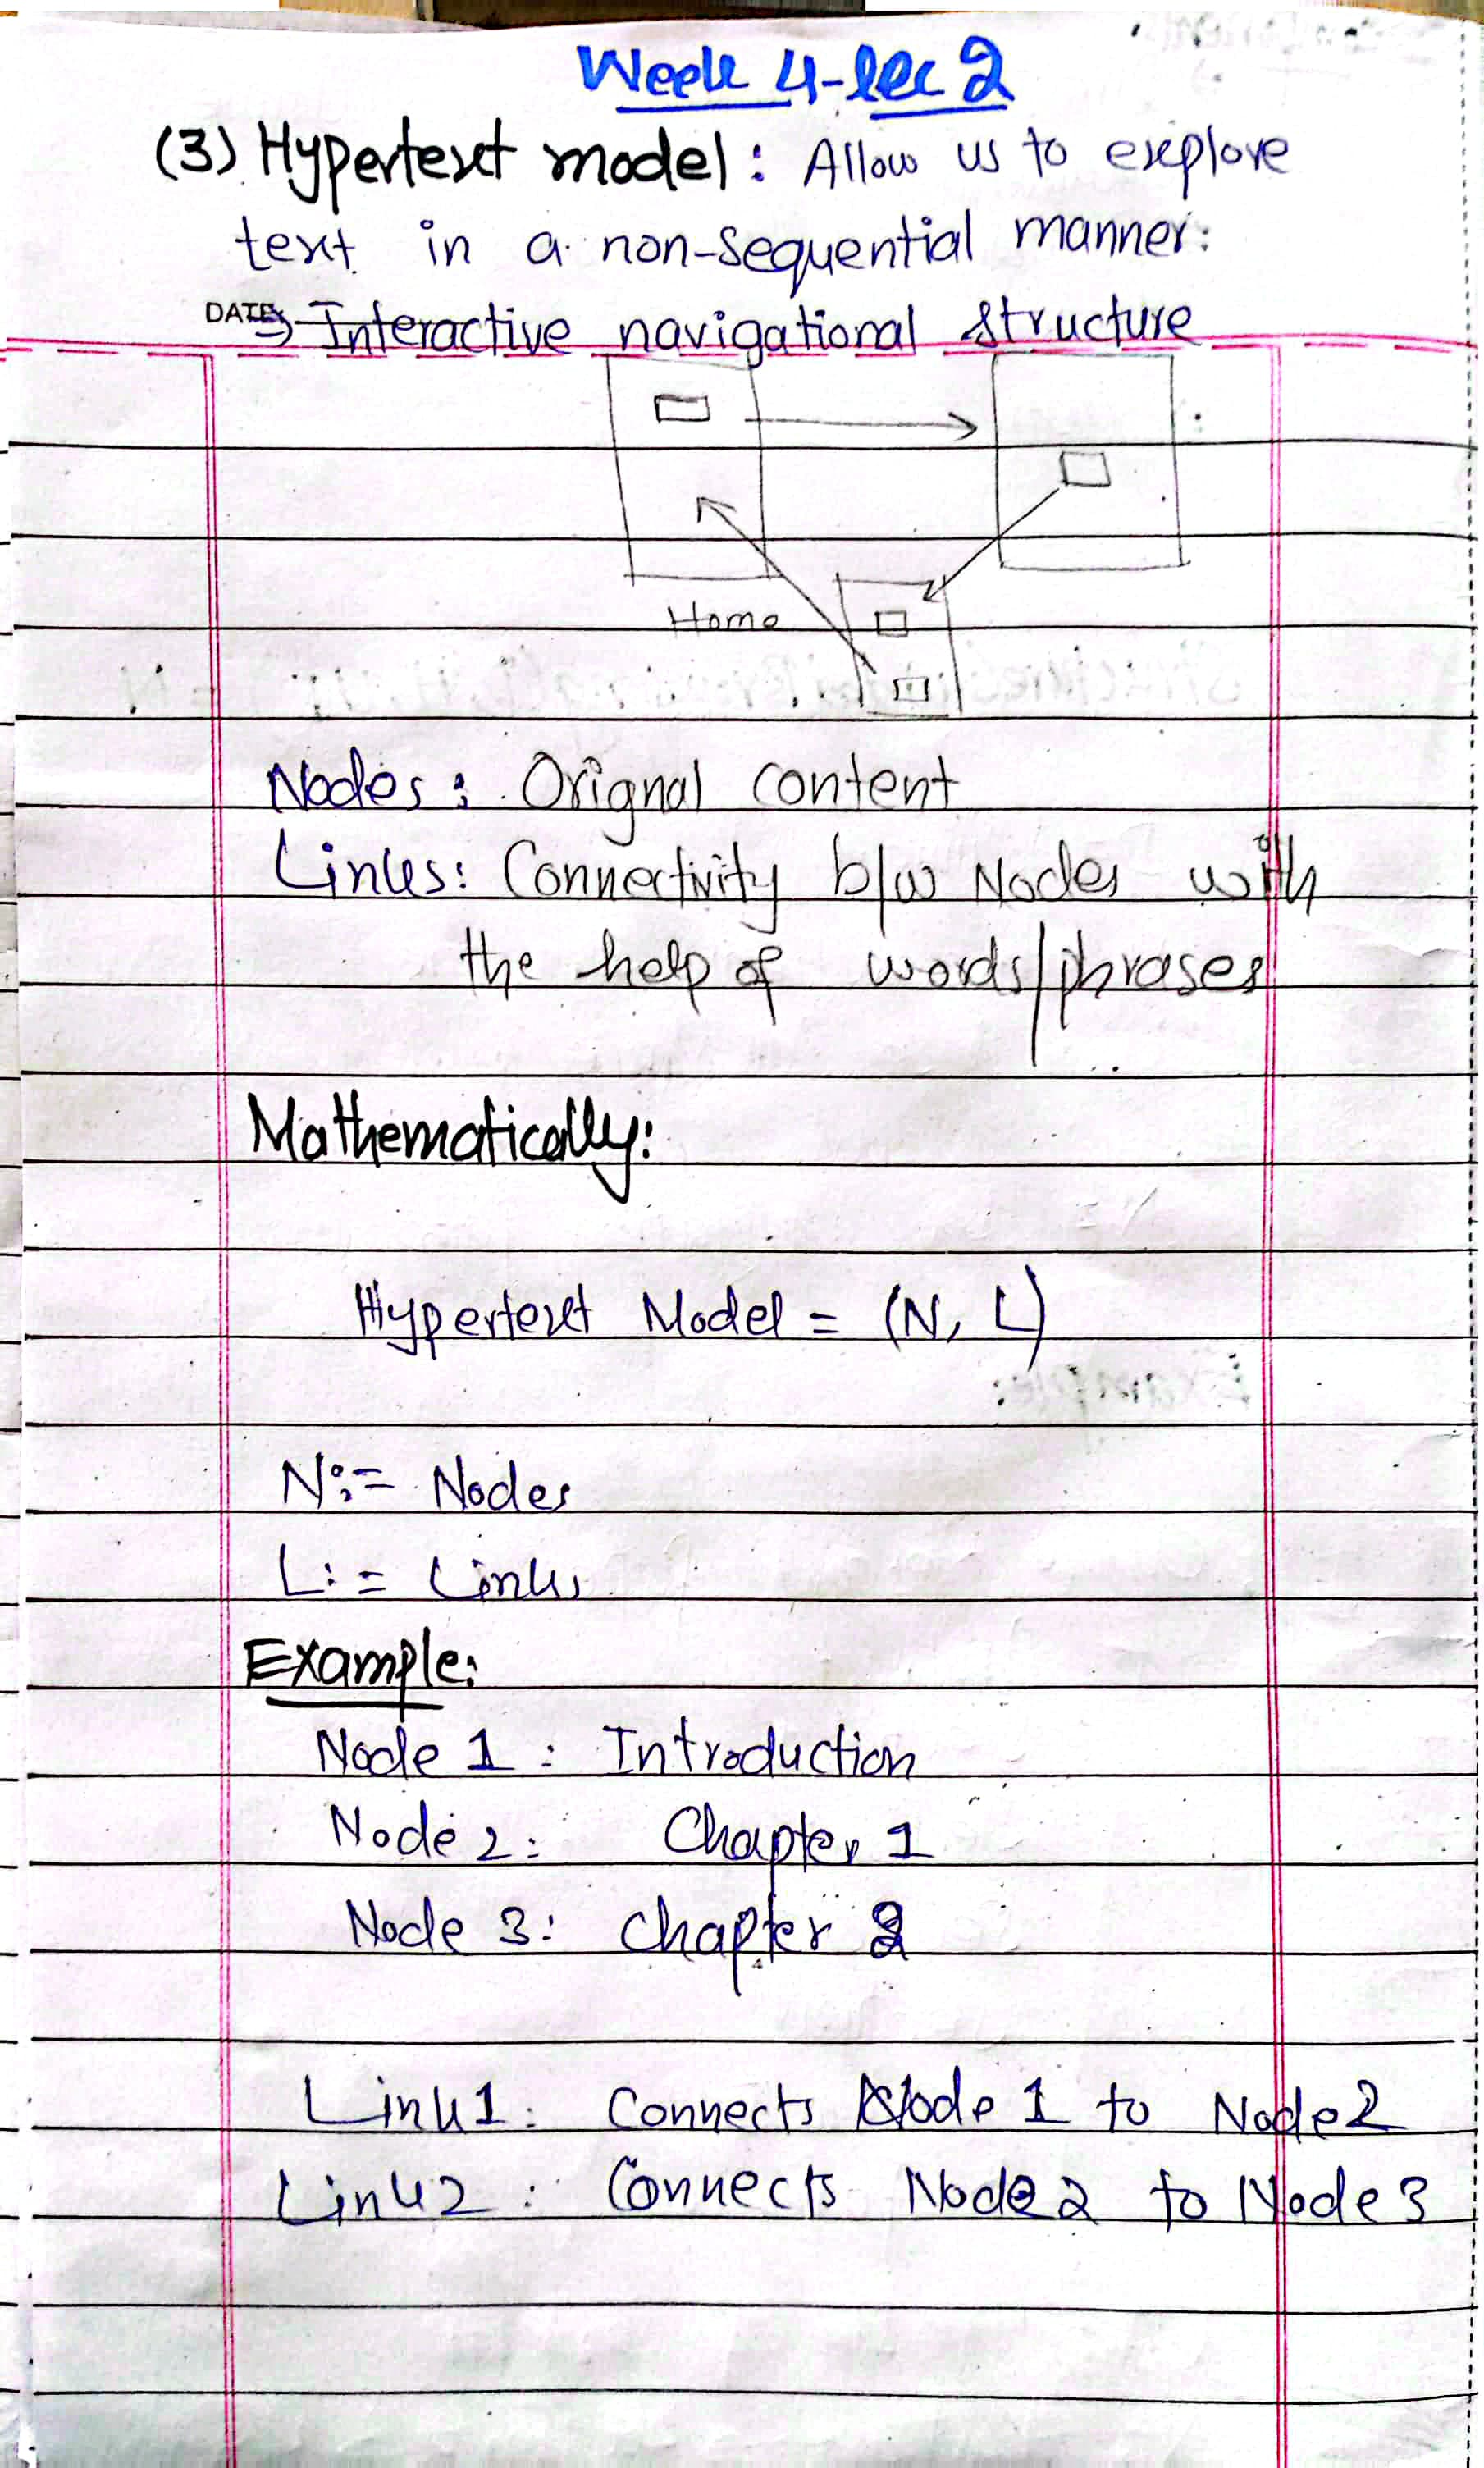 Week 4-lec 2
(3) Hypertext model: Allow us to explore
text in a non-sequential manner:
DATE:
→ Interactive navigational structure
Home
Nodes: Orignal content
Links: Connectivity b/w Nodes with
the help of words/phrases
Mathematically:
Hypertext Model = (N, L)
N:= Nodes
L:= Links
Example:
Node 1: Introduction
Node 2: Chapter 1
Node 3: Chapter 2
Link1: Connects Node 1 to Node2
Link2: Connects Node 2 to Node 3